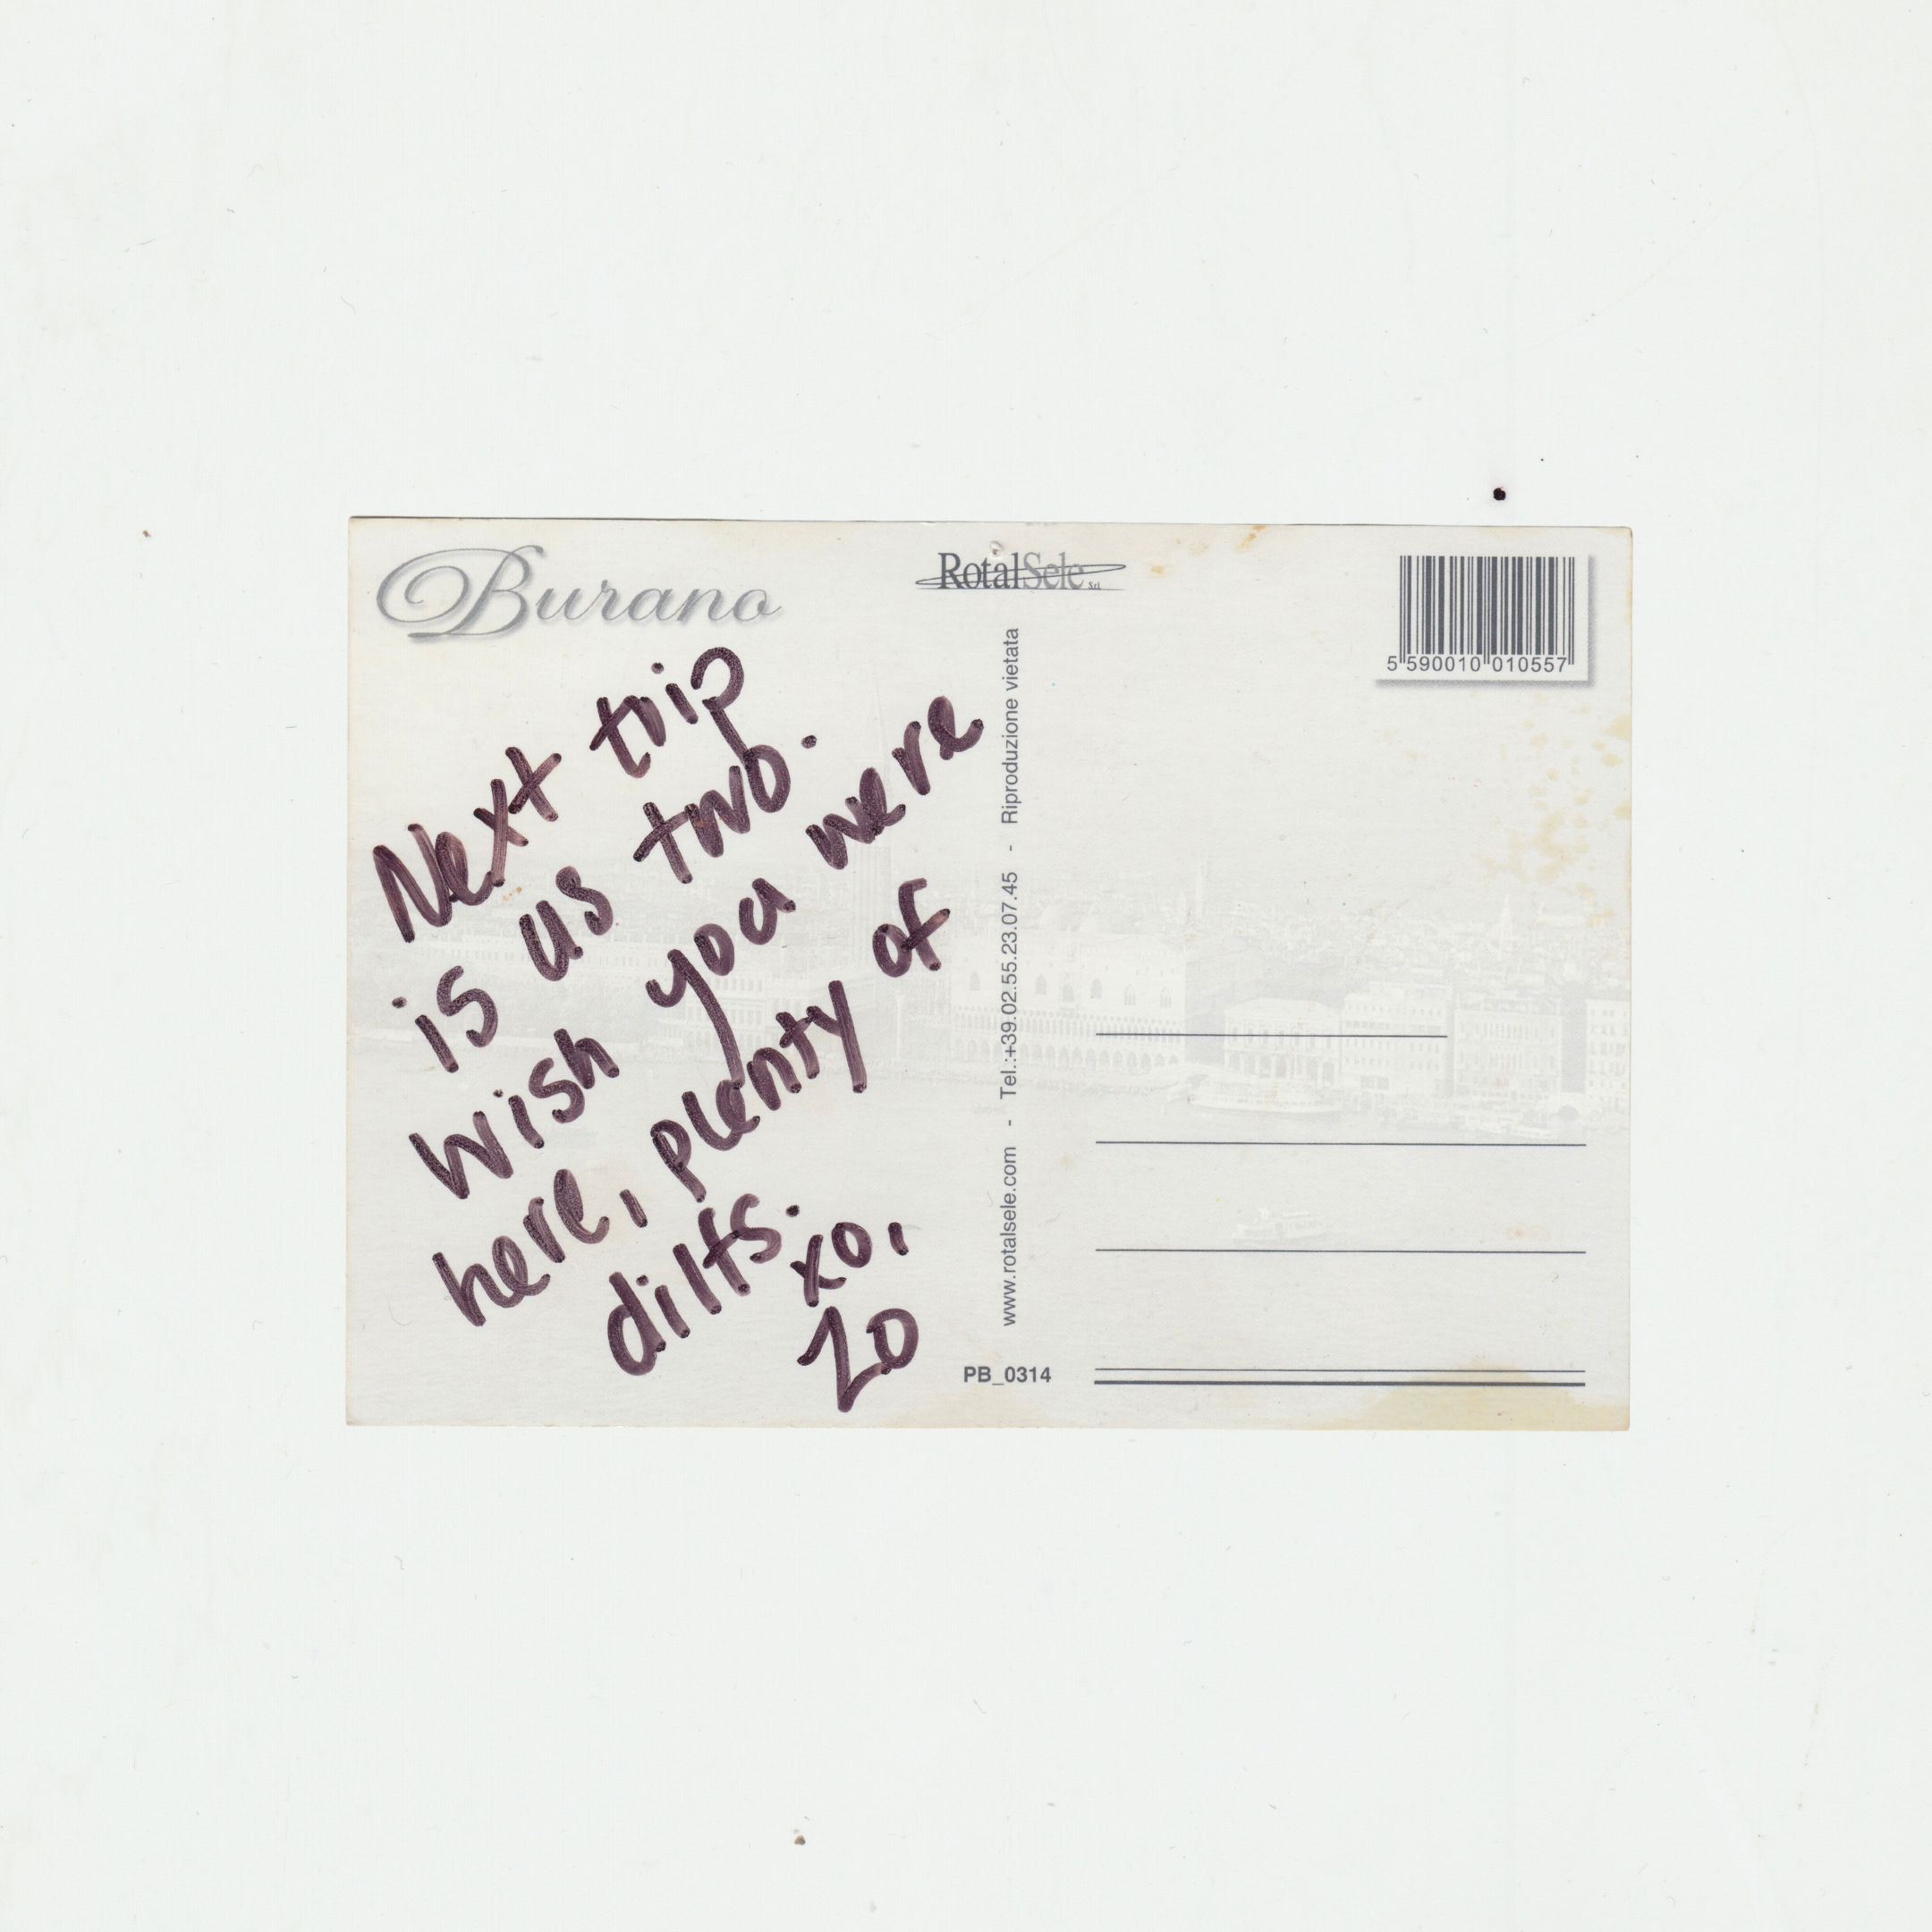 Burano
Next trip
is us two.
Wish you were
here, plenty of
dilts.
xo,
Zo
RotalSele Srl
www.rotalsele.com - Tel.:+39.02.55.23.07.45 - Riproduzione vietata
PB_0314
5 590010 010557